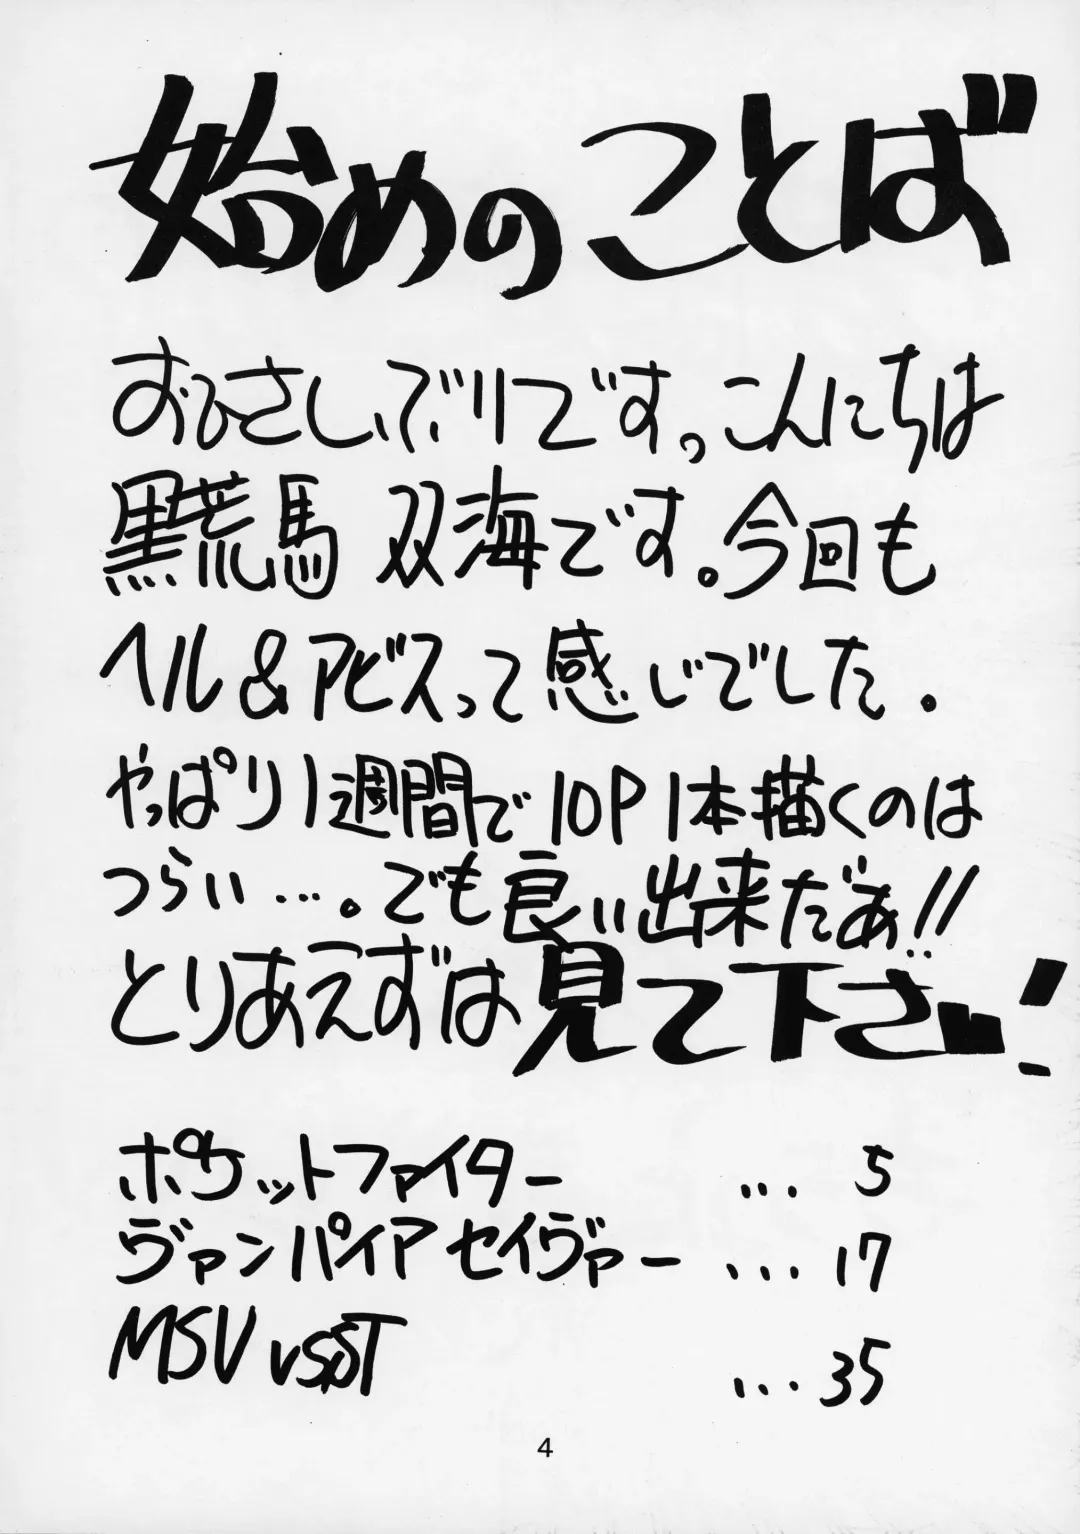 始めのことば
おひさしぶりです。こんにちは
黒荒馬 双海です。今回も
ヘル&アビスって感じでした。
やっぱり1週間で10P1本描くのは
つらい…。でも良い出来だぁ!!
とりあえずは見て下さい!
ポケットファイター ... 5
ヴァンパイア セイヴァー ... 17
MSV vs ST ... 35
4